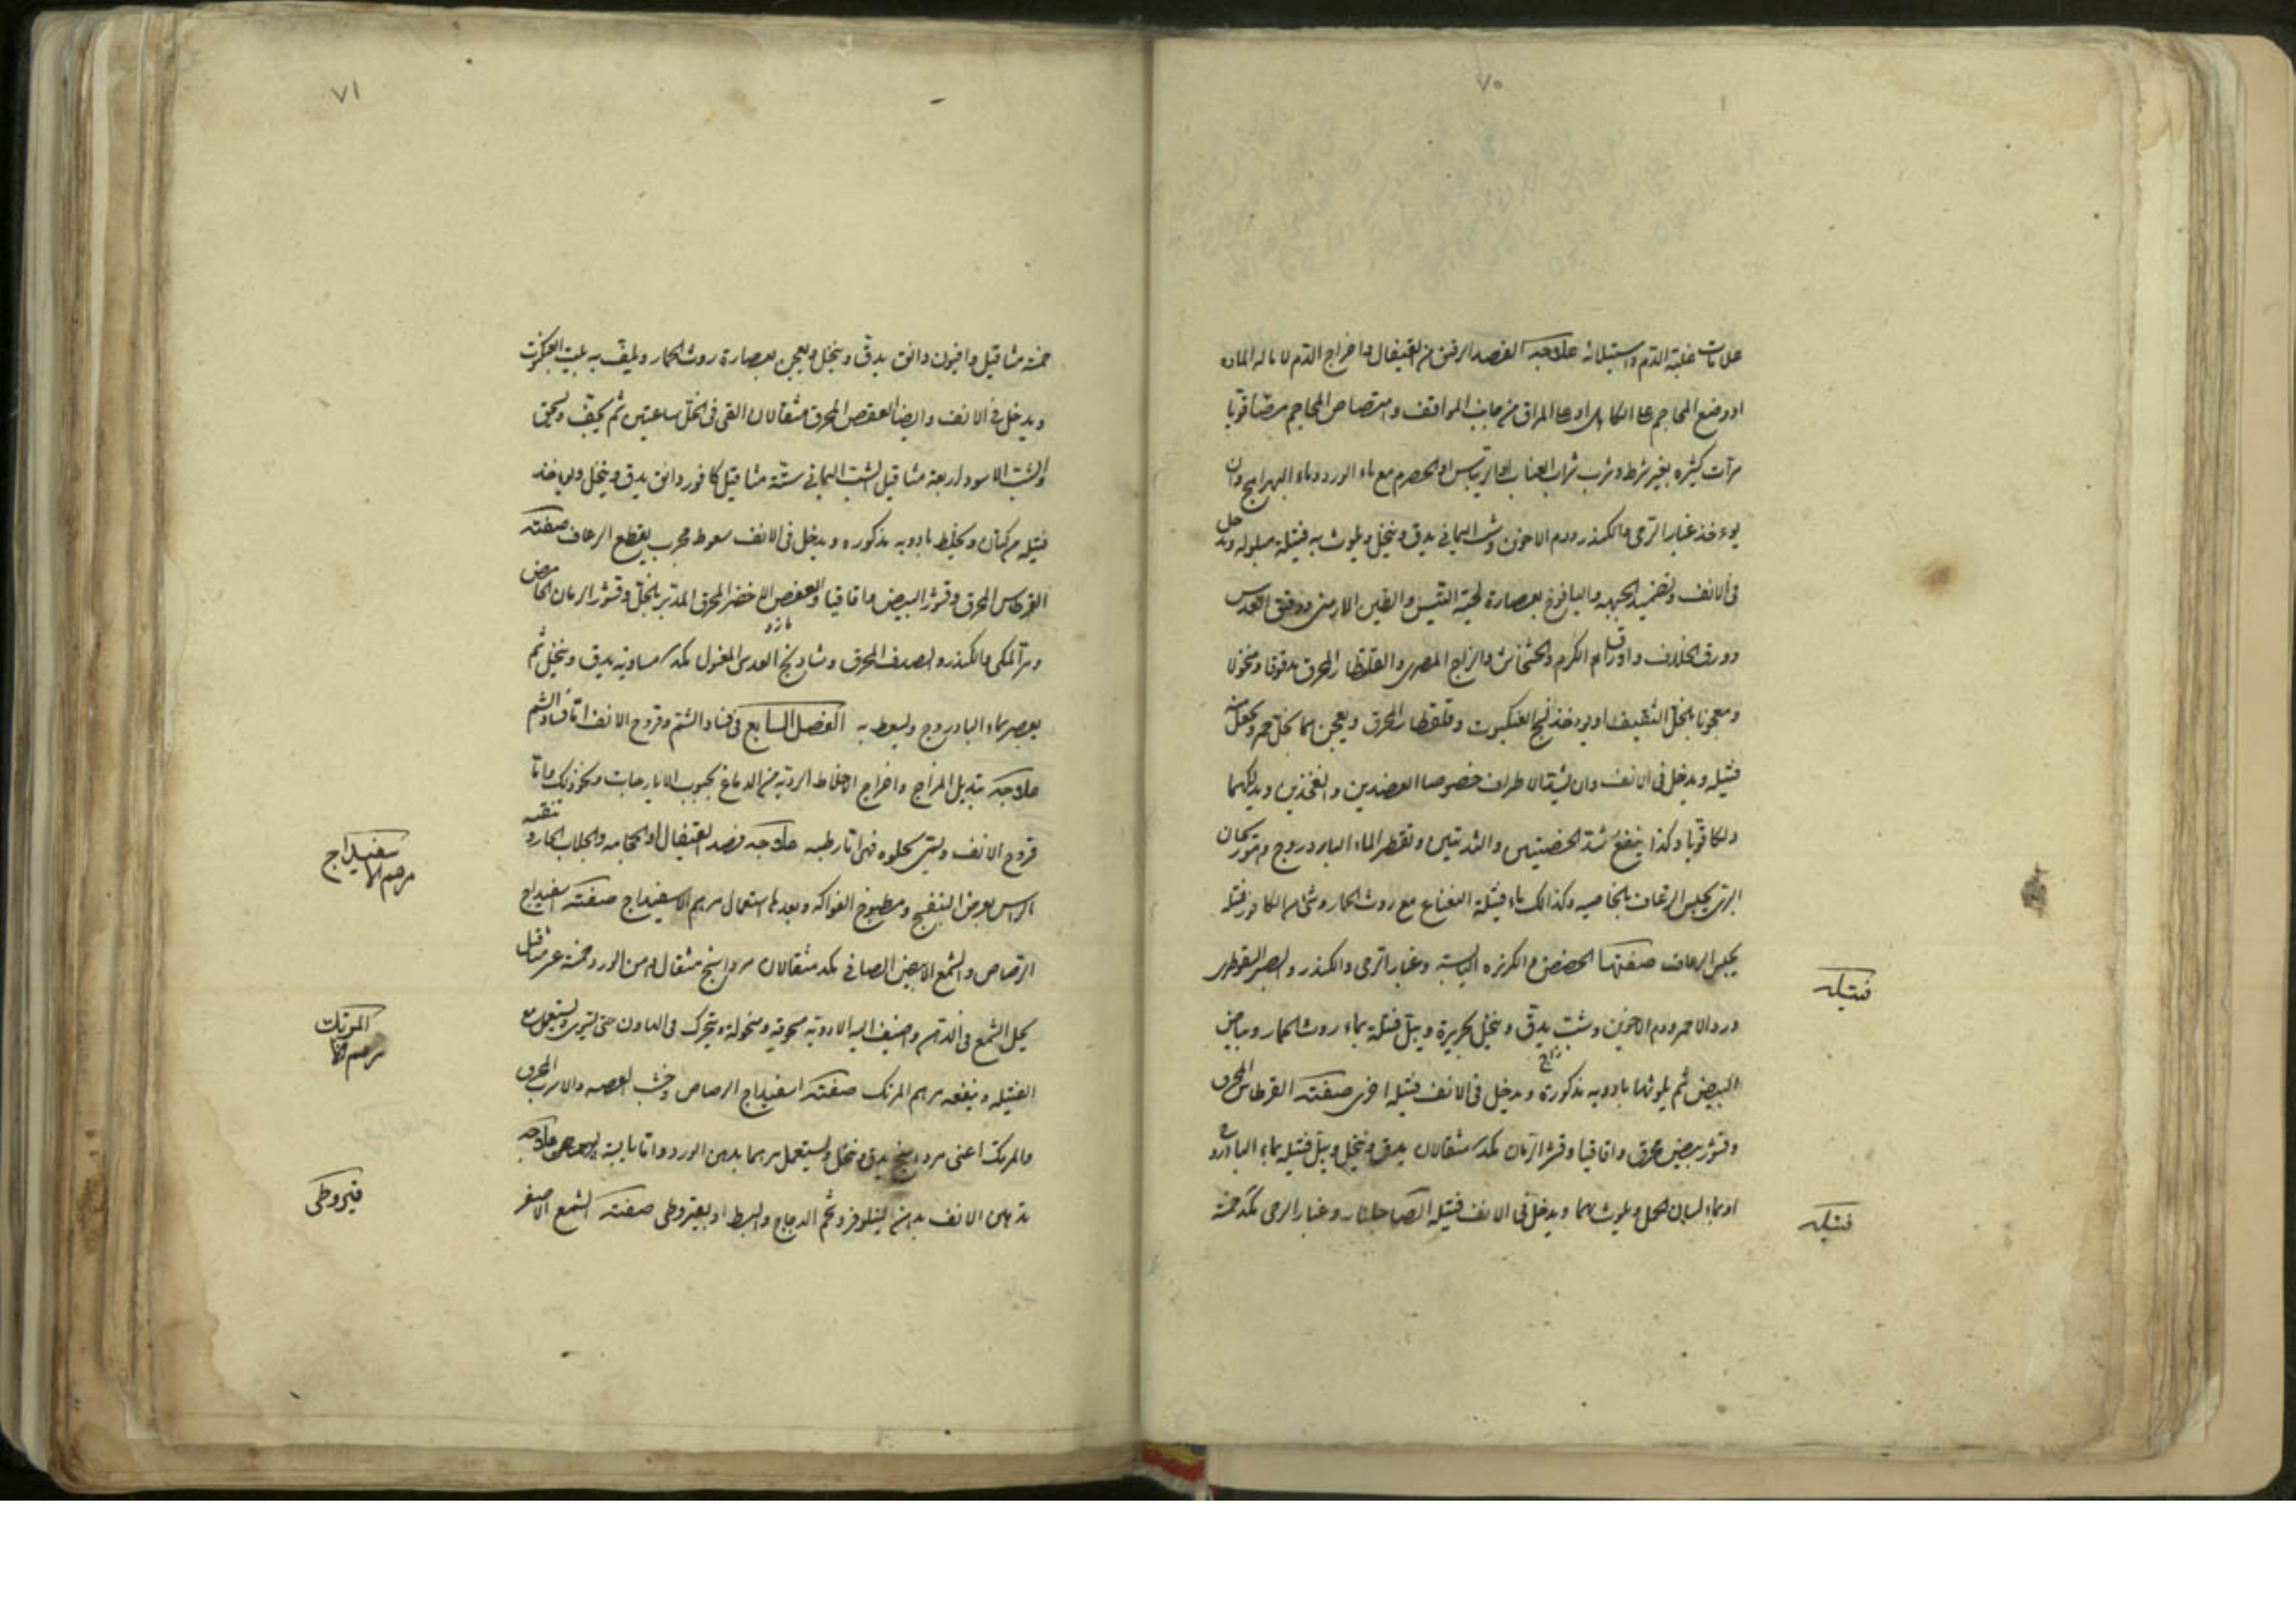 ٧٠
علامات غلبة الدم واستيلائه علاجه الفصد الرقيق من القيفال واخراج الدم لامالة المادة
او وضع المحاجم على الكاهل او على المراق من جانب الموافق وامتصاص المحاجم مصّا قويا
مرّات كثيرة بغير شرط وشرب شراب العناب او الريباس او الحصرم مع ماء الورد وماء وان
يوءخذ غبار الرحى والكندر ودم الاخوين وشب اليمانى يدق وينخل ويلوث به فتيلة مبلوله ويدخل
فى الانف وتضميد الجبهه واليافوخ بعصارة لحية التيس والطين الارمنى ودقيق العدس
وورق الخلاف واوراق الكرم والخشخاش والزاج المصرى والقلقطار المحرق مدقوقا ومنخولا
ومعجونا بالخل الثقيف او يوءخذ نسج العنكبوت وقلقطار المحرق ويعجن بهما بخل خمر ويجعل منه
فتيله ويدخل فى الانف وان يشد الاطراف خصوصا العضدين والفخذين ويدلكهما
دلكا قويّا وكذا ينفع شدّ الخصيتين والثديين وتقطير الماء البادروج
يحبس الرعاف بالخاصيه وكذالك ماء فتيلة النعناع مع روث الحمار وشئ من الكافور فتيله
يحبس الرعاف صفتها الحضض والكزبره اليابسة وغبار الرحى والكندر والصبر السقوطرى
فتيله
ورد الاحمر ودم الاخوين وشب يدقّ وينخل بحريرة ويبلّ فتيلة بماء روث الحمار وبياض
زاج
البيض ثم يلوثها بادويه مذكورة ويدخل فى الانف فتيلة اخرى صفته القرطاس المحرق
وقشور بيض محرق واقاقيا وقشر الرّمان بكد مثقالان يدق وينخل ويبلّ فتيله بماء البادروج
او بماء لسان الحمل ويلوث بهما ويدخل فى الانف فتيله ايضا جلنار وغبار الرحى بكد خمسة
فتيله
٧١
خمسة مثاقيل وافيون دانق يدقّ وينخل ويعجن بعصارة روث الحمار ويلفّ به بيت العنكبوت
ويدخل فى الانف وايضا العفص المحرق مثقالان القى فى الخلّ ساعتين ثم يجفّف ويسحق
والشبّ الاسود اربعة مثاقيل الشبّ اليمانى ستّة مثاقيل كافور دانق يدق وينخل ويوءخذ
فتيله من كتان ويخلط بادويه مذكوره ويدخل فى الانف سعوط مجرب يقطع الرعاف صفته
القرطاس المحرق وقشور البيض واقاقيا والعفص الاخضر المحرق المدبّر بالخلّ وقشور الرمان الحامض
مازو
ومرّ المكى والكندر والصدف المحرق وشادنج العدسى المغسول بكد مساوية يدق وينخل ثم
يعصر بماء البادروج ويسعط به الفصل السابع فى فساد الشم وقروح الانف امّا فساد الشم
علاجه تبديل المزاج واخراج الاخلاط الرديّة من الدماغ بحبوب الايارجات ونحو ذلك وامّا
قروح الانف ويسمّى فهى اما رطبه علاجه فصد القيفال او الحجامه والجلاب الحار وتنقيه
الراس بعرض البنفسج ومطبوخ الفواكه وبعدها استعمال مرهم الاسفيداج صفته اسفيداج
مرهم الاسفيداج
الرصاص والشمع الابيض الصافى بكد مثقالان مرداسنج مثقال دهن الورد خمسة عشر مثقال
يحل الشمع فى الدهن واضيف اليه الادوية مسحوقة ومنخولة ويتحرك فى الهاون حتى يستوى ويستعمل مع
مرهم المرتك
الفتيله وينفعه مرهم المرتك صفته اسفيداج الرصاص وخبث الفضه والاسرب المحرق
والمرتك اعنى مرداسنج يدق وينخل ويستعمل مرهما بدهن الورد وامّا يابسة علاجه
تدهين الانف بدهن النيلوفر وشحم الدجاج والبط او بقيروطى صفته الشمع الاصفر
قيروطى